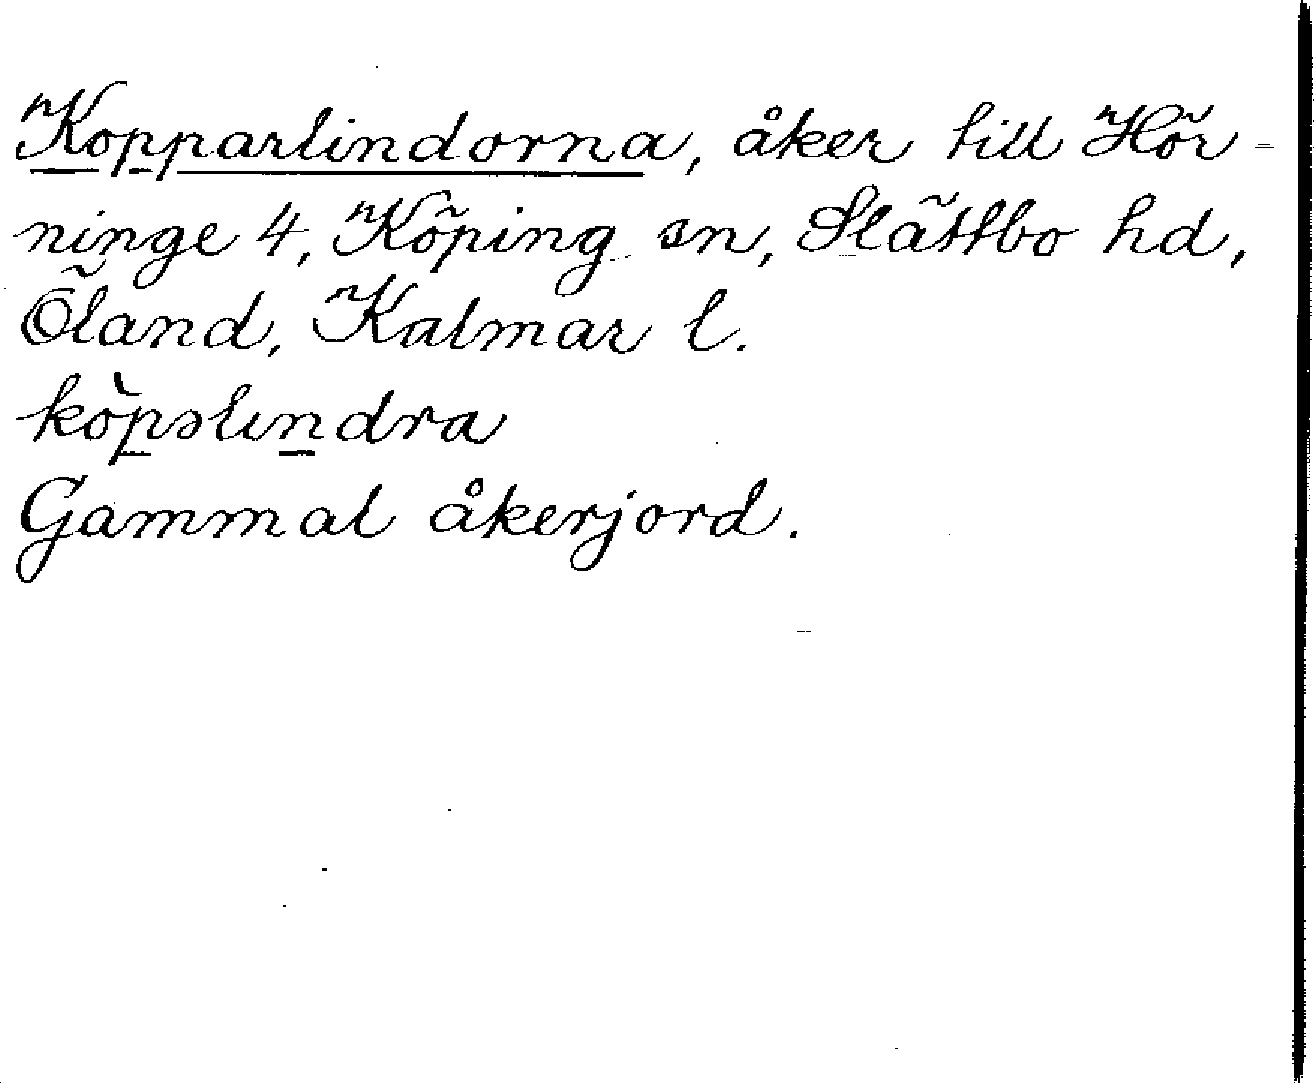 Kopparlindorna, åker till Hör-
ninge 4, Köping sn, Slättbo hd,
Öland, Kalmar l.
kòp̲əlin̲dra
Gammal åkerjord.